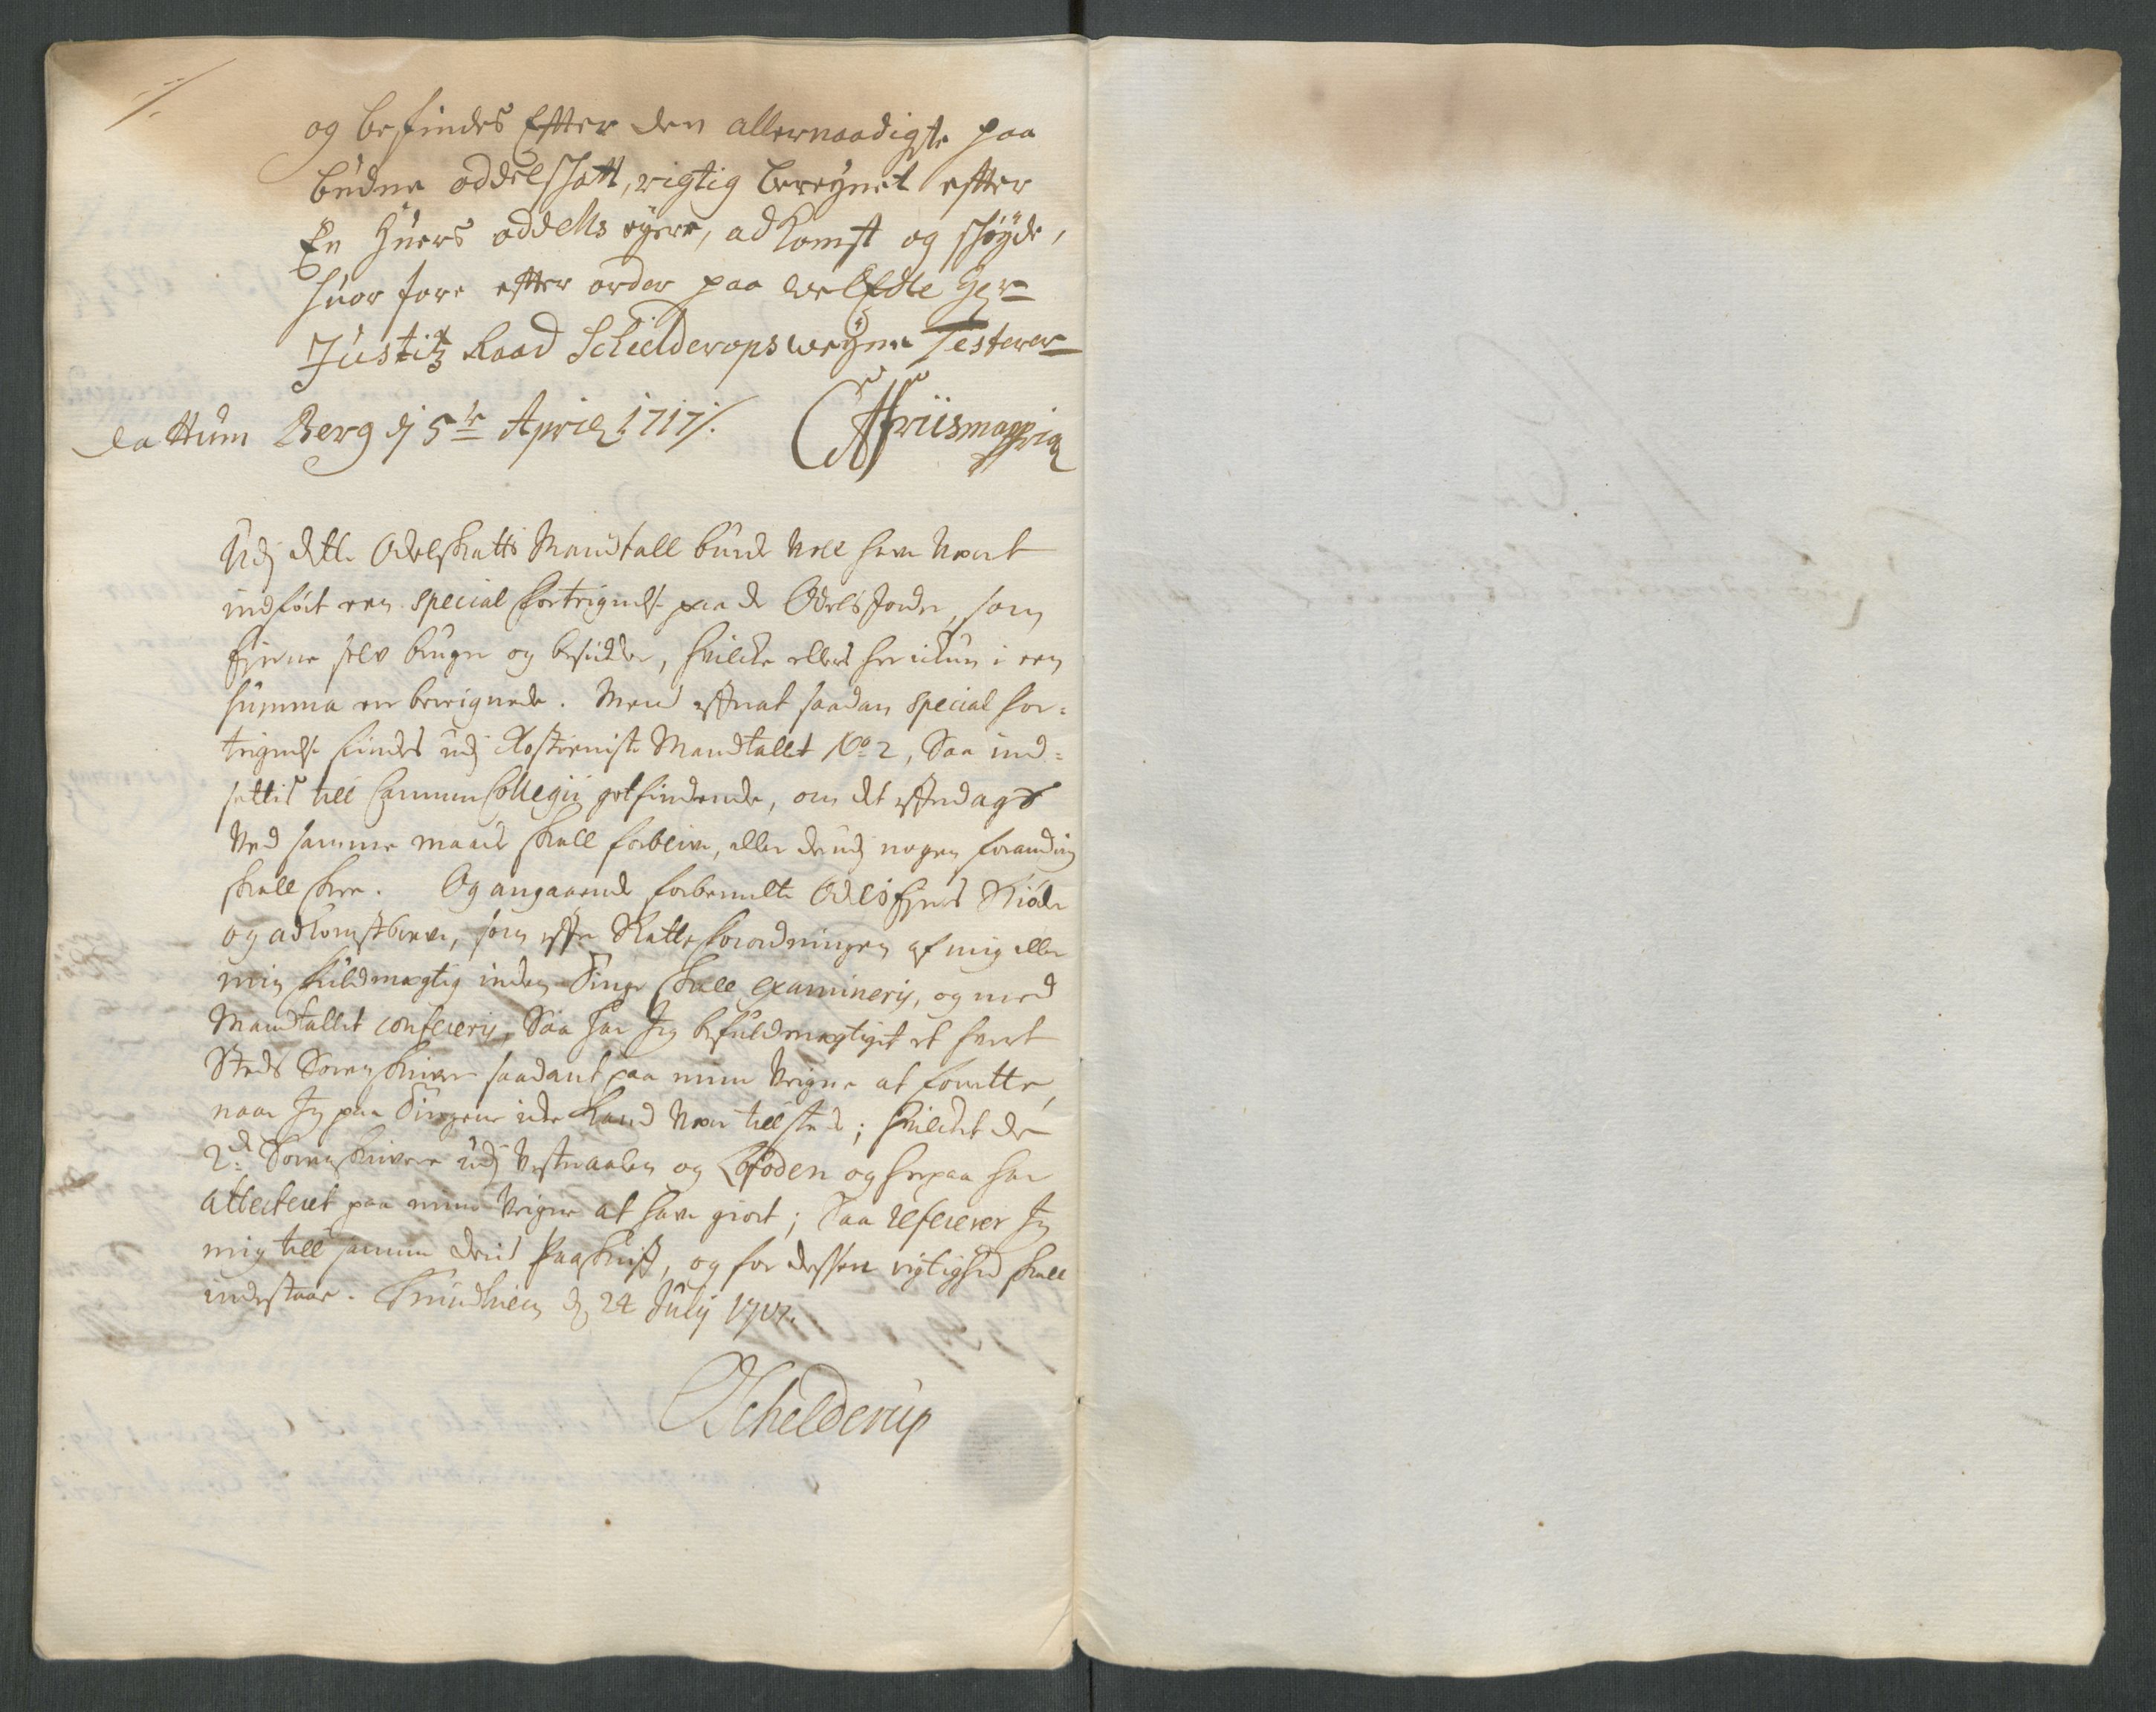 og befindes Efter den allernaadigste paa
budne oddelskatt, rigtig bereignet efter
En huers oddells eyere, adkomst og skjøyde,
huor fore efter order paa velEdle Hr
Justitz Raad Schielderops weigne Testerer
dattum Berg dj 5te April 1717/.
Udj dette Odelskatts Mandtall burde Vell have Været
indført een special Fortegnelse paa de Odels Jorder, som
Eierne selv bruger og besidder, hvilke ellers her ickun i een
Summa er beregnede. Mend efterat saadan special for-
tegnelse findes udj Mandtallet No 2, Saa ind-
settis till Cammer Collegii gotfindende, om det efterdags
Ved samme maade skall forblive, eller derudj nogen forandring
skall skee. Og angaaende forbemelte Odels Eieres Skiøder
og adkomstbreve, som efter Skatte Forordningen af mig eller
min fuldmægtig inden Tinge skall examineris, og med
Mandtallet confereris, Saa har Jeg befuldmægtiget et hvert
Steds Sorenskriver saadant paa mine Vegne at forrette,
naar Jeg paa Tingene icke kand Være tillstede; hvilcket de
2de Sorenskrivere udj Vesteraalen og Lofoden og herpaa har
attesteret paa mine Vegne at have giort; Saa refererer Jeg
mig till samme deris Paaskrift, og for dessen rigtighed skall
indestaae. Trundhiem d 24 July 1717.
Schelderup